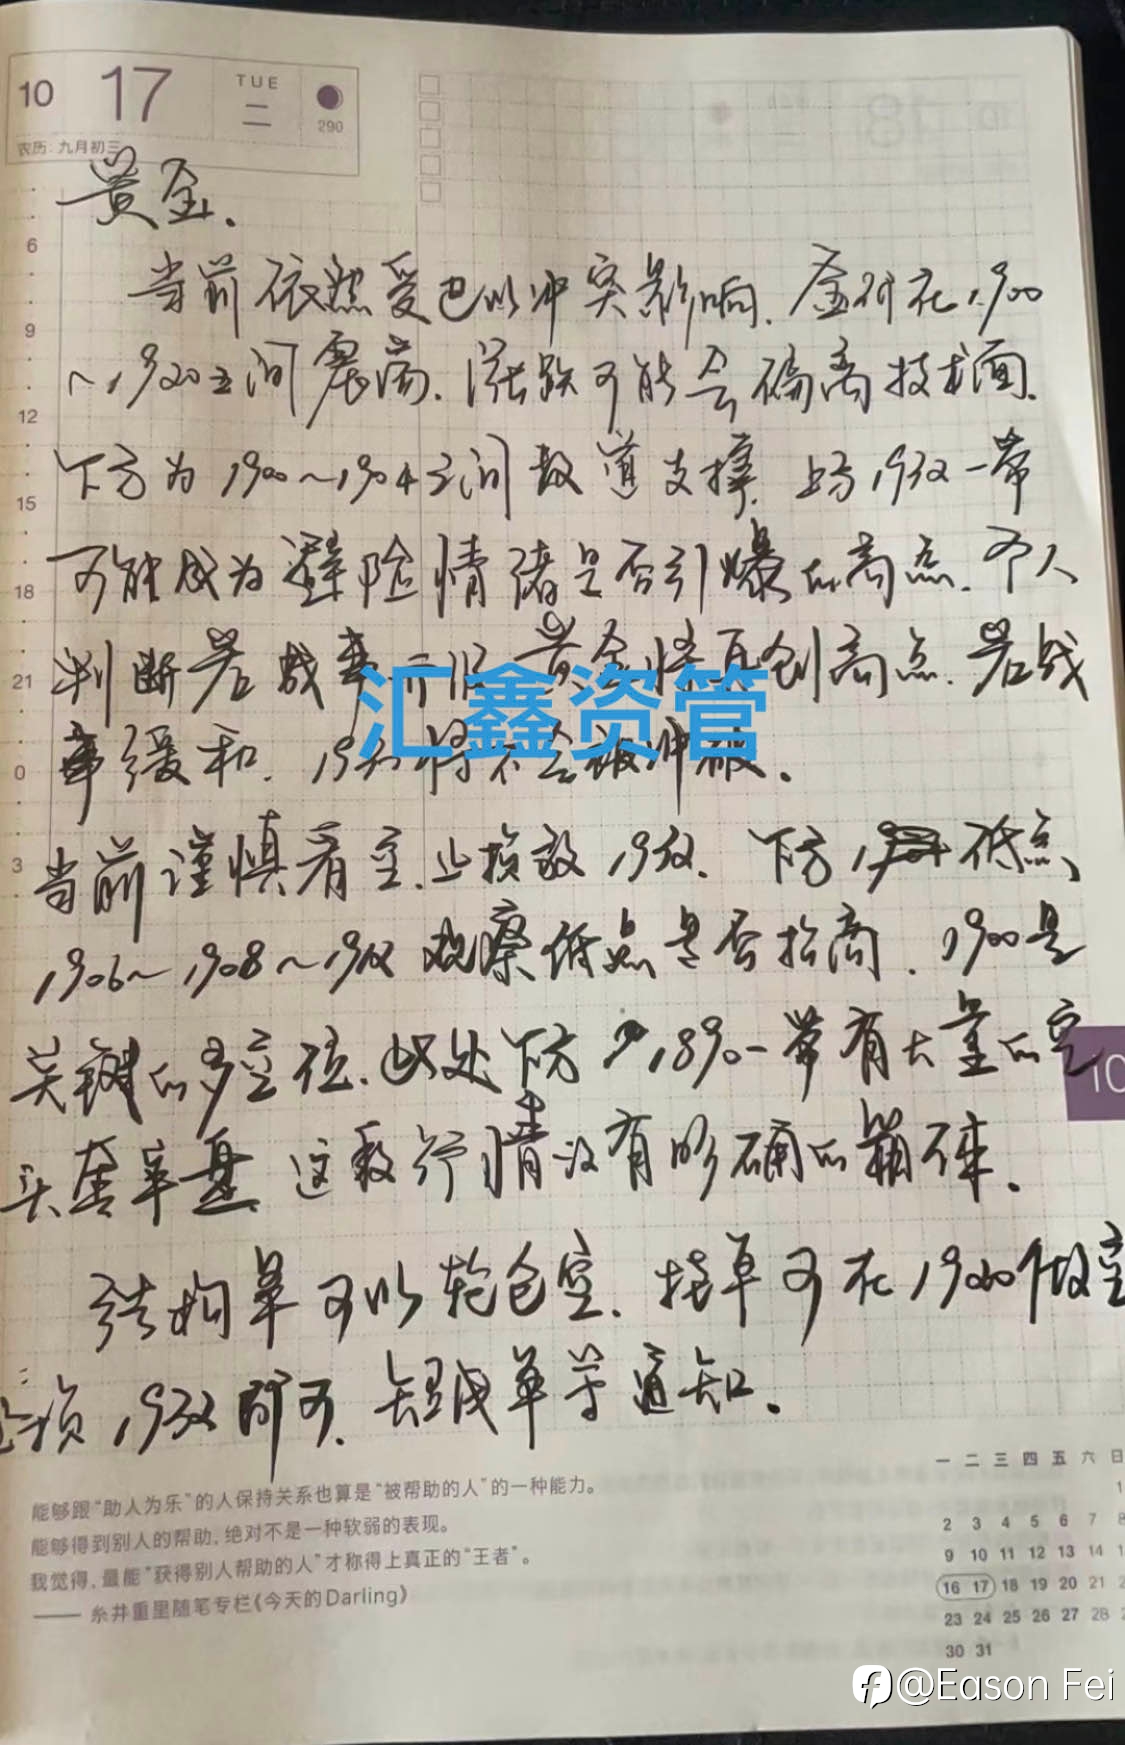 10 17 TUE 二 290
农历：九月初三
黄金.
当前依然受巴以冲突影响. 金价在1900
~1920之间震荡. 涨跌可能会偏离技术面.
下方为1900~1904之间数道支撑. 上方1932一带
可能成为避险情绪是否引爆的高点. 个人
判断若战事升级 黄金将再创高点. 若战
事缓和. 193 将不会被冲破.
汇鑫资管
当前谨慎看空. 止损放1932. 下方 低点、
1906~1908~1912 观察低点是否抬高. 1900是
关键的多空位. 此处下方 1890一带有大量的空
头 这数行情没有明确的箱体.
结构单可以轮仓空. 挂单可在1920做空
止损1932即可. 短线单等通知.
6
9
12
15
18
21
0
3
10
能够跟“助人为乐”的人保持关系也算是“被帮助的人”的一种能力。
能够得到别人的帮助，绝对不是一种软弱的表现。
我觉得，最能“获得别人帮助的人”才称得上真正的“王者”。
—— 糸井重里随笔专栏《今天的Darling》
一 二 三 四 五 六 日
1
2 3 4 5 6 7 8
9 10 11 12 13 14
16 17 18 19 20 21
23 24 25 26 27 28
30 31
@Eason Fei